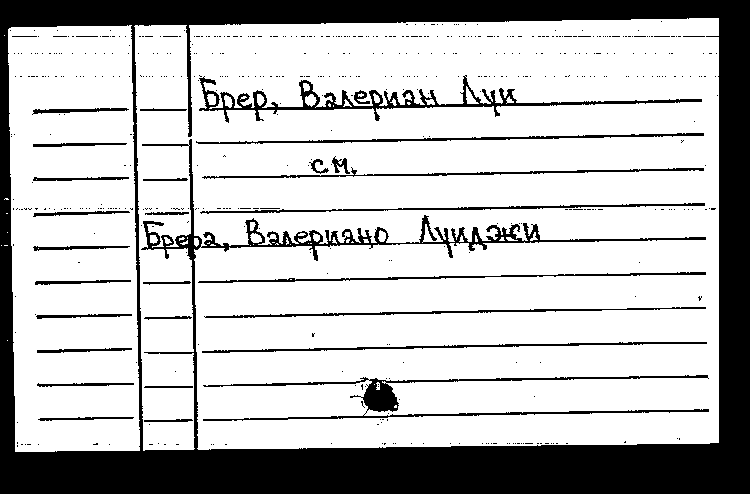 Брер, Валериан Луи
см.
Брера, Валериано Луиджи